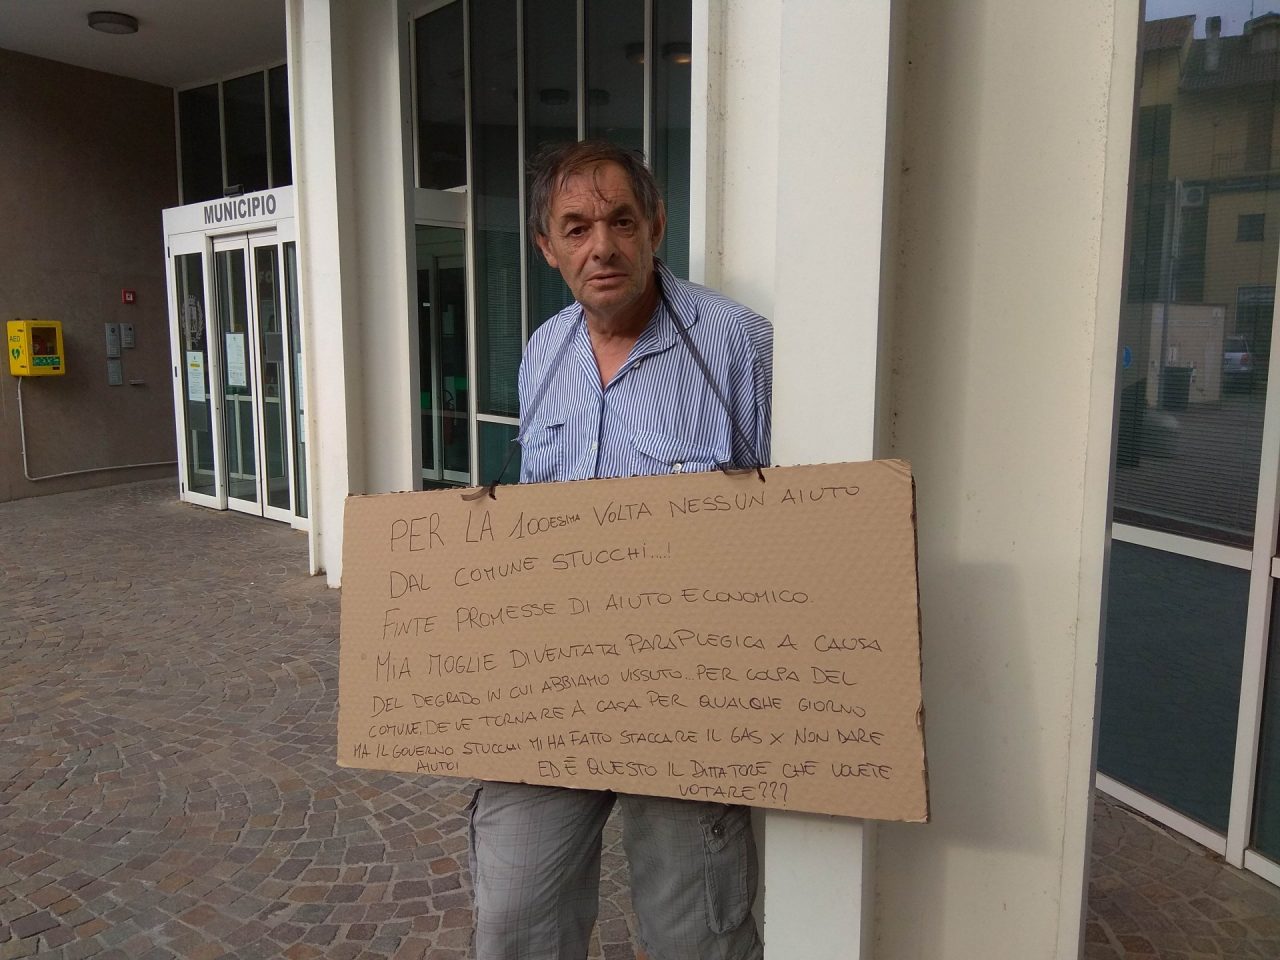 MUNICIPIO
AED
PER LA 100ESIMA VOLTA NESSUN AIUTO
DAL COMUNE STUCCHI....!
FINTE PROMESSE DI AIUTO ECONOMICO.
MIA MOGLIE DIVENTATA PARAPLEGICA A CAUSA
DEL DEGRADO IN CUI ABBIAMO VISSUTO...PER COLPA DEL
COMUNE, DEVE TORNARE A CASA PER QUALCHE GIORNO
MA IL GOVERNO STUCCHI MI HA FATTO STACCARE IL GAS X NON DARE
AIUTO! ED È QUESTO IL DITTATORE CHE VOLETE
VOTARE???